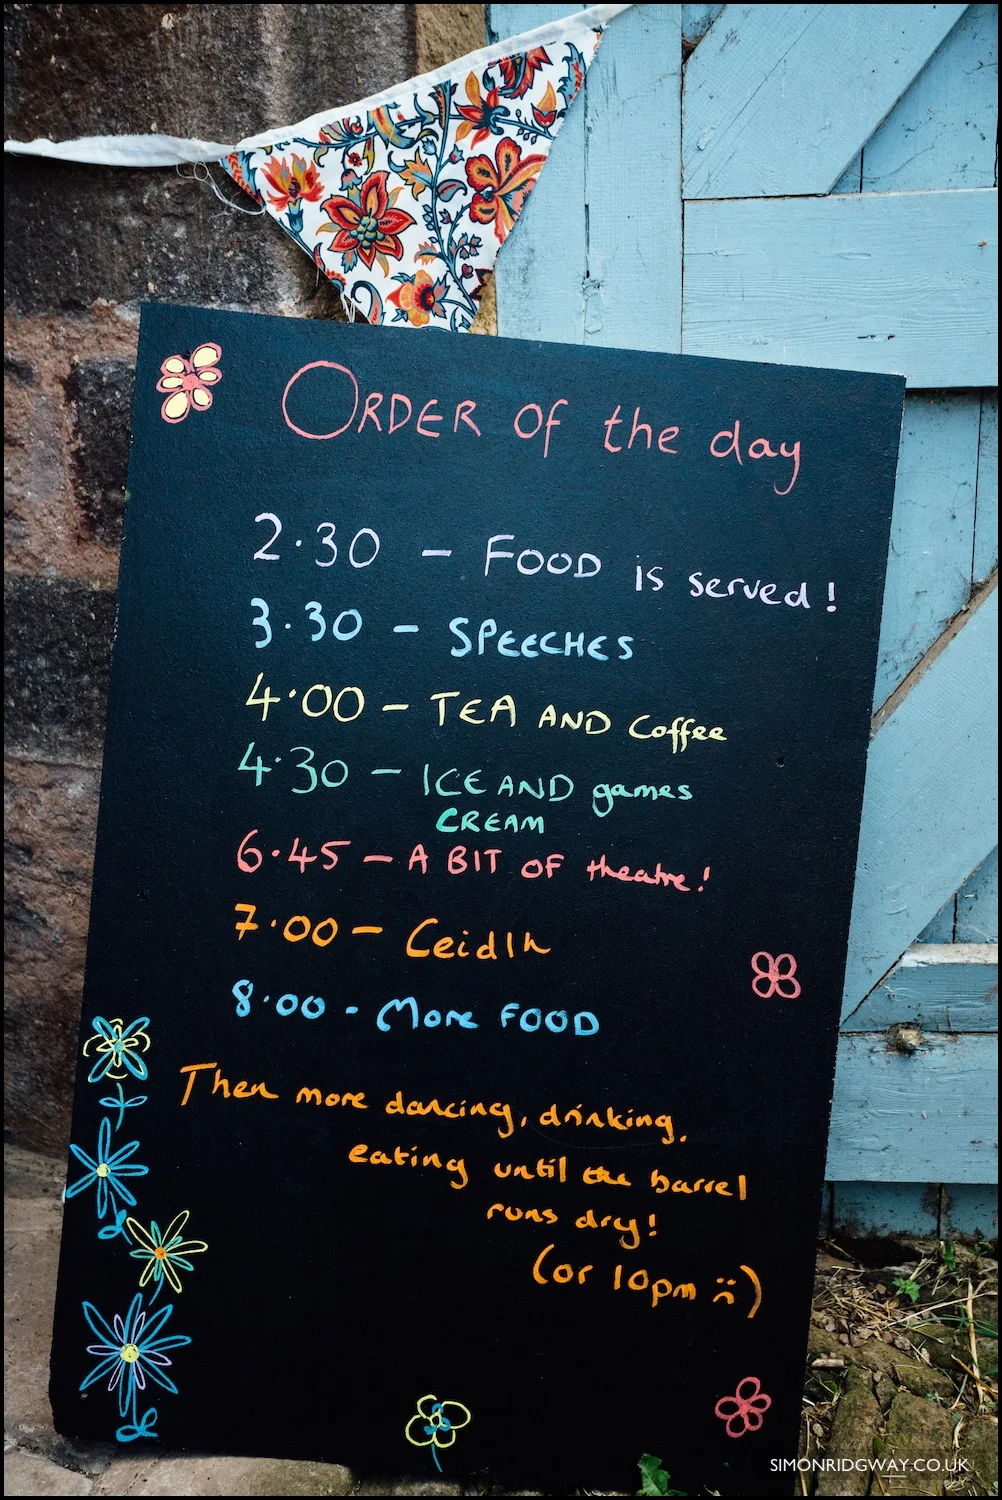 ORDER of the day
2.30 - FOOD is served!
3.30 - SPEECHES
4.00 - TEA AND coffee
4.30 - ICE AND games
CREAM
6.45 - A BIT OF theatre!
7.00 - Ceidlh
8.00 - More FOOD
Then more dancing, drinking,
eating until the barrel
runs dry!
(or 10pm ☹)
SIMONRIDGWAY.CO.UK